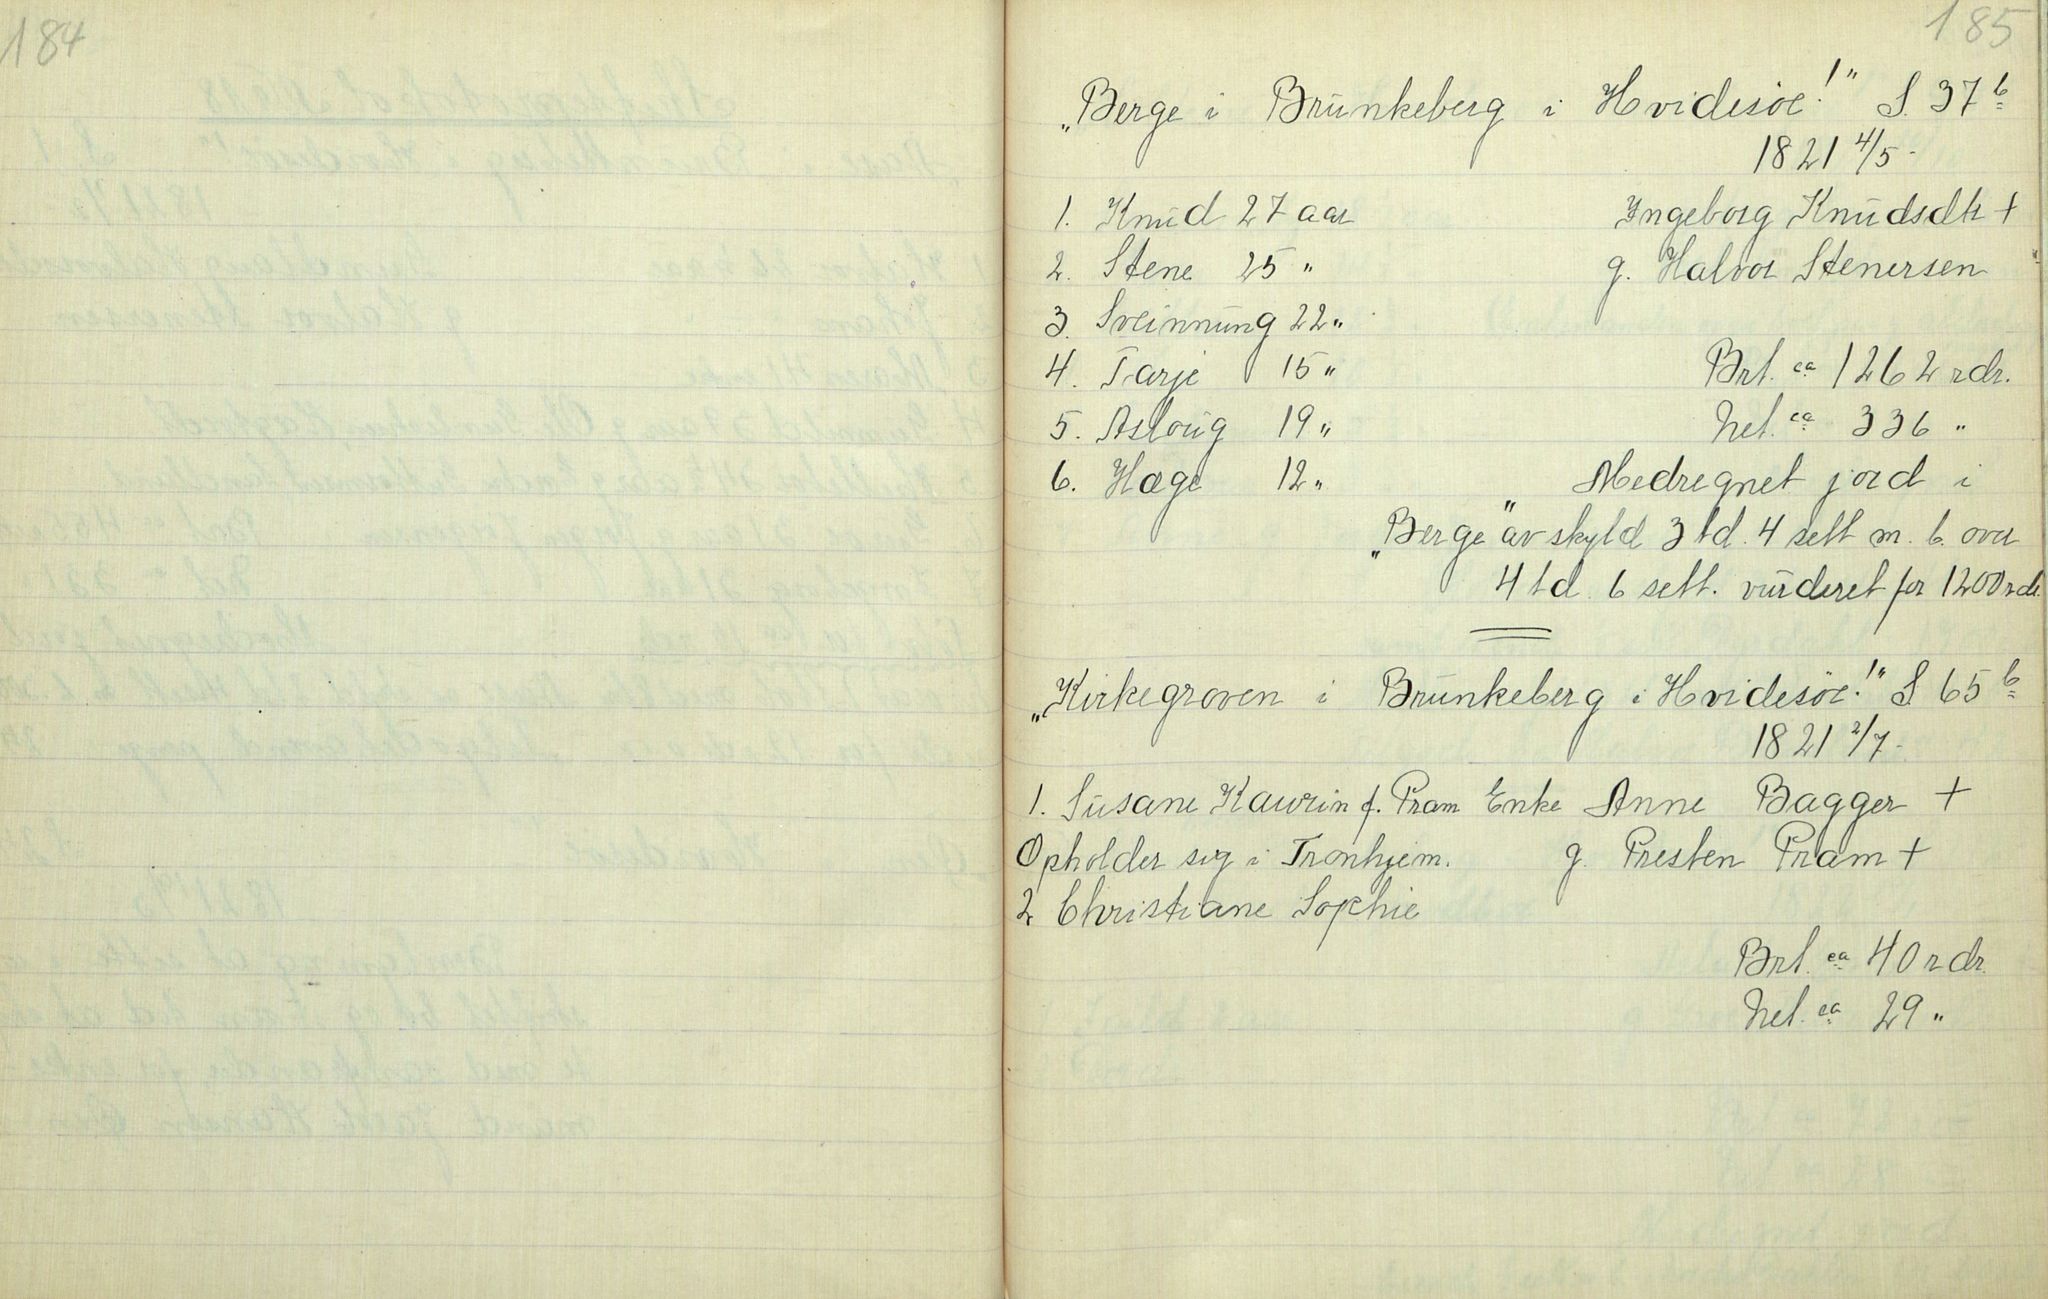 184
185
„Berge i Brunkeberg i Hvidesöe!" S. 37 b
1821 4/5 -
1. Knud 27 aar Ingeborg Knudsdtr +
2. Stene 25 " g. Halvor Stenersen
3. Sveinnung 22 "
4. Tarje 15 " Brt. ca 1262 rdr.
5. Asloug 19 " Net. ca 336 "
6. Hæge 12 " Medregnet jord i
„Berge" av skyld 3 td. 4 sett m. b. over
4 td. 6 sett. vurderet for 1200 rdr.
„Kirkegroven i Brunkeberg i Hvidesöe!" S 65 b
1821 2/7 -
1. Susane Kaurin f. Pram Enke Anne Bagger +
Opholder sig i Tronhjem. g. Presten Pram +
2 Christiane Sophie
Brt. ca 40 rdr.
Net. ca 29 "